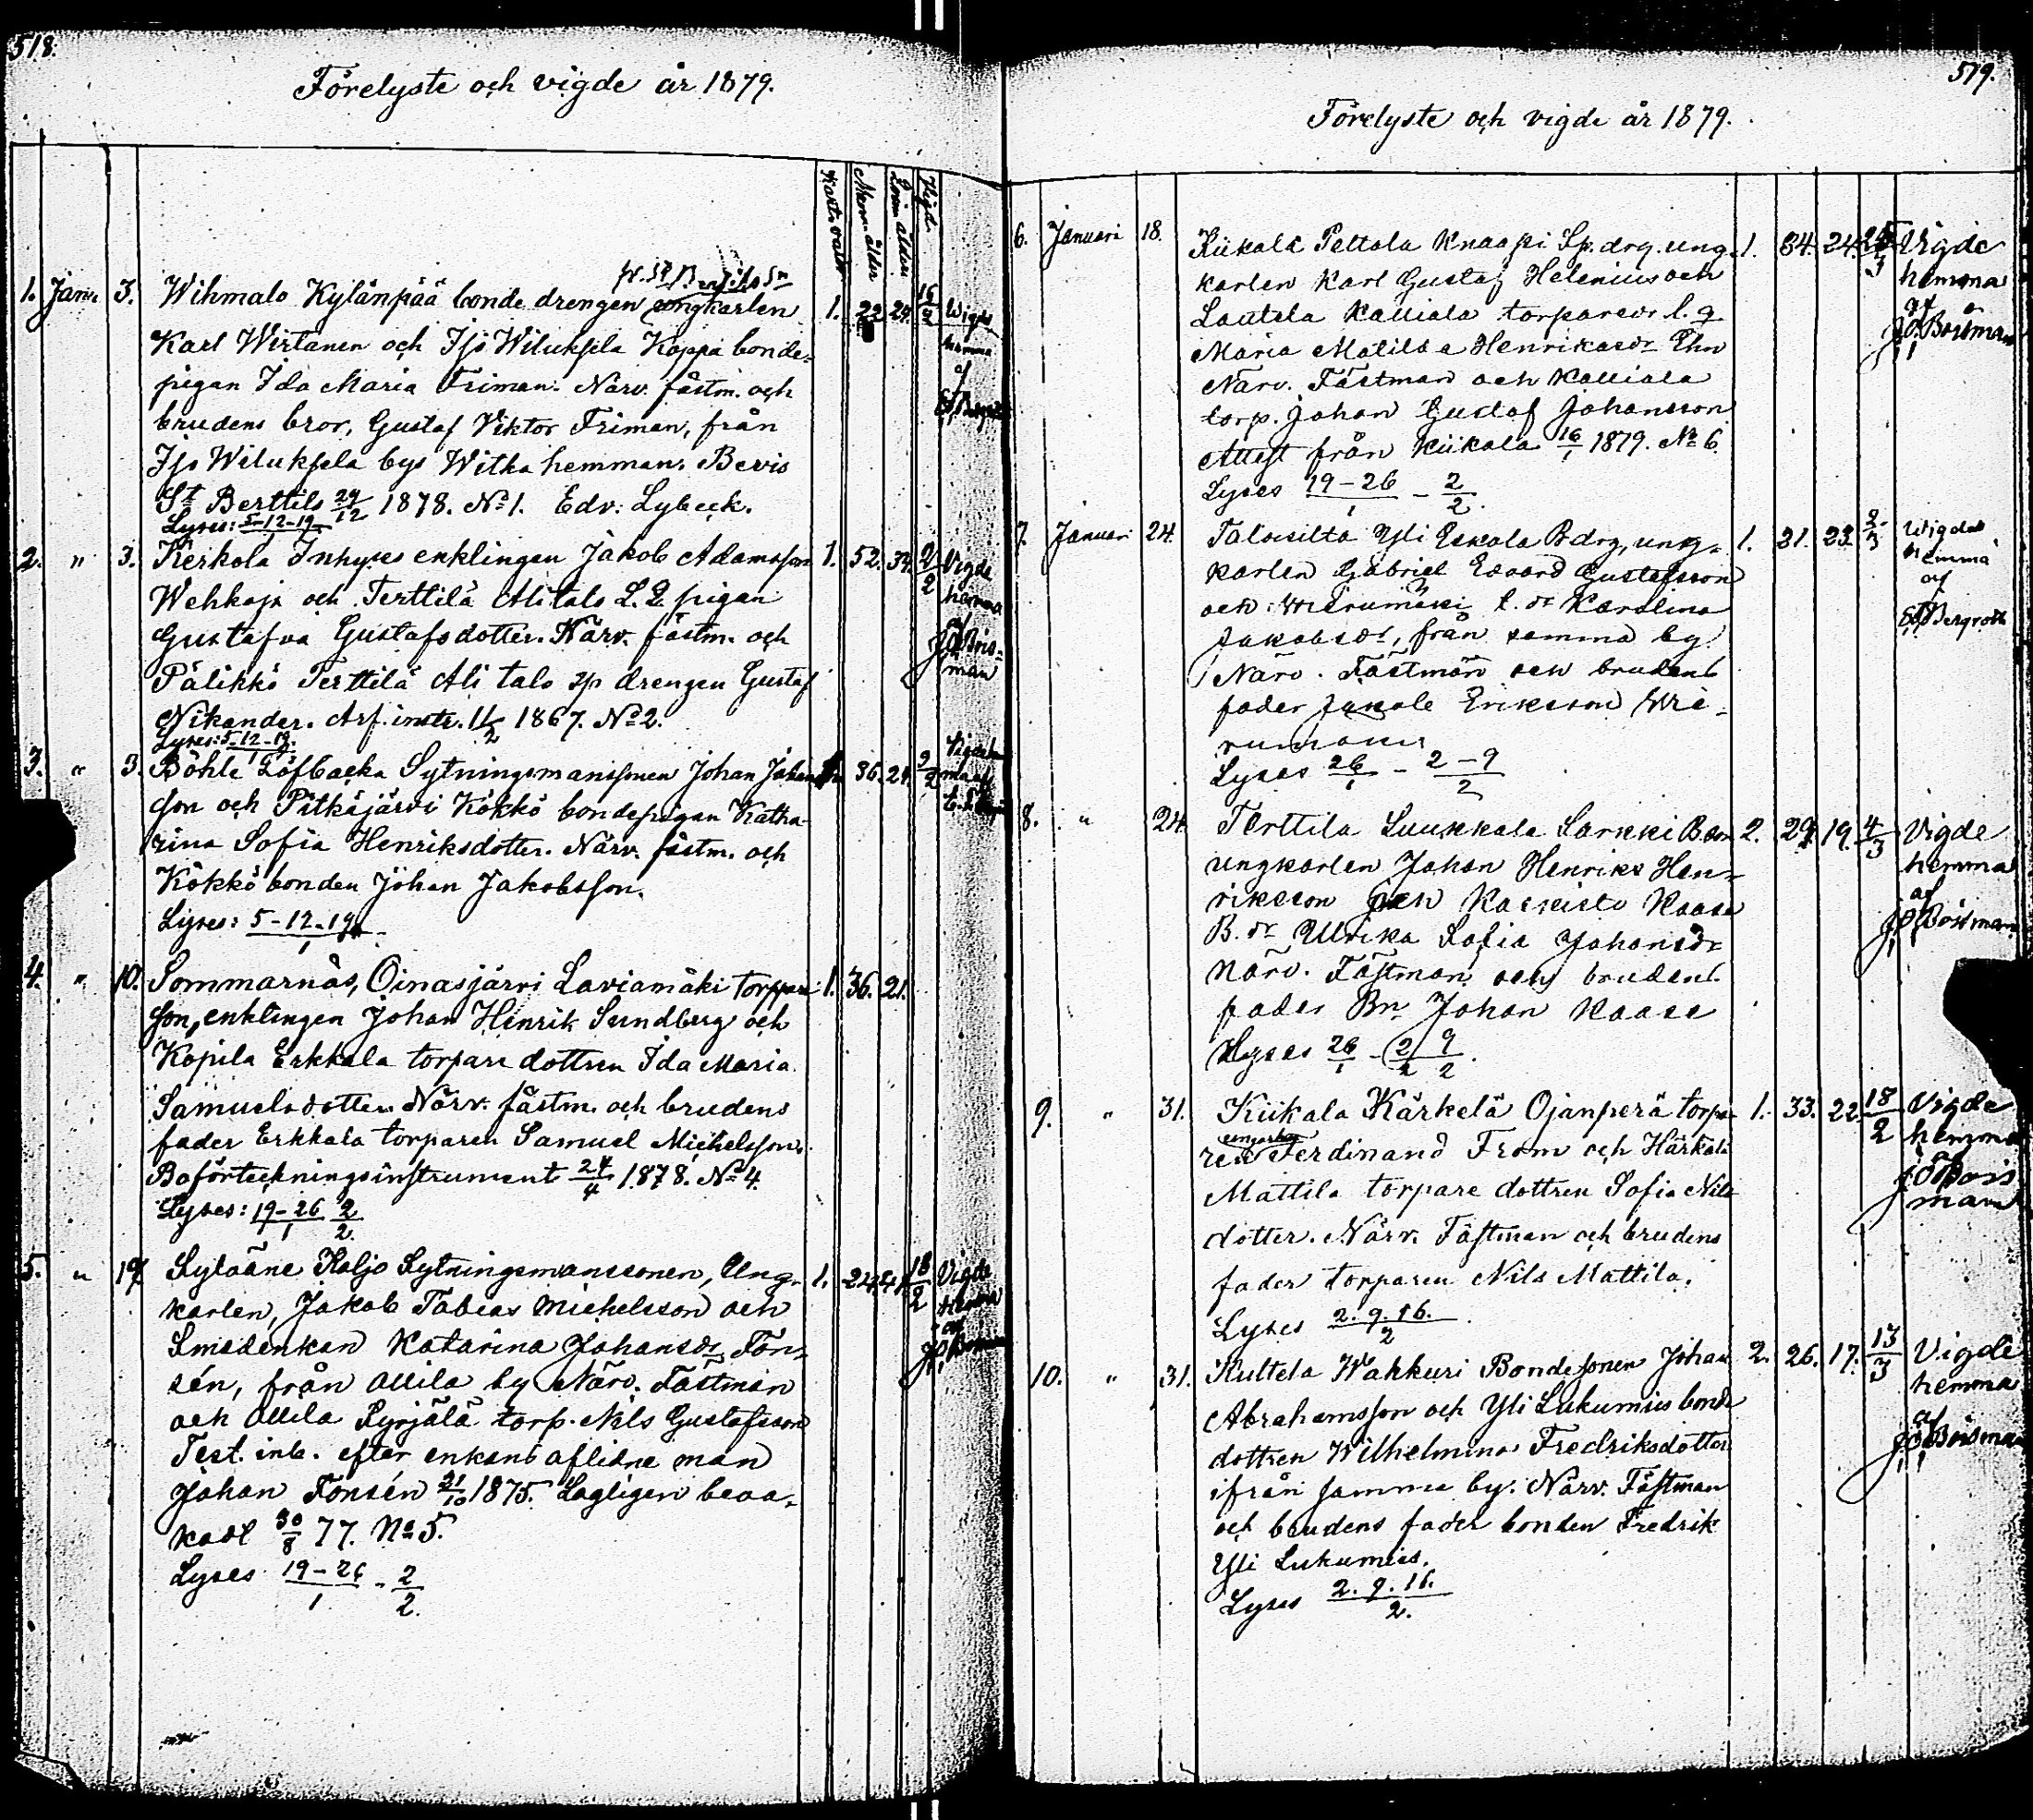 518.
Förelyste och vigde år 1879.
Kast. o vald Mann. ålder Qvin. ålder Vigd
1. Janu. 3. Wihmalo Kylänpää bonde drengen ungkarlen 1. 22. 24. 16/2 Wigde
Karl Wirtanen och Iso Wiluksela Koppa bonde- hemma
pigan Ida Maria Friman. Närv. fästm. och af
brudens bror, Gustaf Viktor Friman, från
Iso Wiluksela bys Witka hemman. Bevis
St Berttils 29/12 1878. No 1. Edv. Lybeck.
Lyses: 5-12-19/1
2. " 3. Kerkola Inhyses enklingen Jakob Adamsson 1. 52. 34. 2/2 Vigde
Wehkaja och Terttilä Alitalo L. Q. pigan hemma
Gustafva Gustafsdotter. Närv. fästm. och af
Pälikkö Terttilä Ali talo sp drengen Gustaf J.O. Bois-man
Nikander. Arf. instr. 11/2 1867. No 2.
Lyses: 5-12-19/1
3. " 3. Böhle Löfbacka Sytningsmanssonen Johan Johans 36. 24. 9/2
son och Pitkäjärvi Kökkö bondepigan Katha-
rina Sofia Henriksdotter. Närv. fästm. och
Kökkö bonden Johan Jakobsson.
Lyses: 5-12-19/1
4. " 10. Sommarnäs, Oinasjärvi Laviamäki torppare 1. 36. 21.
son, enklingen Johan Henrik Sundberg och
Kopila Erkkala torpare dottren Ida Maria
Samuelsdotter. Närv. fästm. och brudens
fader Erkkala torparen Samuel Michelsson.
Boförteckningsinstrument 24/4 1878. No 4.
Lyses: 19-26/1 2/2
5. " 17 Syloäne Kaljo Sytningsmanssonen, Ung- 1. 24. 18/2 Vigde
karlen, Jakob Tobias Michelsson och hemma
Smedenkan Katarina Johansdr Fon- af
sén, från Ollila by Närv. Fästman J.O. Boisman
och Ollila Syrjälä torp. Nils Gustafsson
Test. inb. efter enkans aflidne man
Johan Fonsén 21/10 1875. Lagligen beva-
kadt 30/8 77. No 5.
Lyses 19-26/1 - 2/2.
519.
Förelyste och vigde år 1879.
6. Januari 18. Kiikala Peltola Knaapi Sp. drg. ung- 1. 34. 24. 25/3 Vigde
karlen Karl Gustaf Helenius och hemma
Lautela Kalliala torparedr l. q. af
Maria Matilda Henriksdr Ehn J.O. Boisman
Närv. Fästman och Kalliala
torp. Johan Gustaf Johansson
Attest från Kiikala 16/1 1879. No 6.
Lyses 19-26/1 - 2/2.
7. Januari 24. Talosilta Yli Eskola Bdrg, ung- 1. 21. 23. 2/3 Wigda
karlen Gabriel Edvard Gustafsson hemma
och Wirumäki t. dr Karolina af
Jakobsdr, från samma by Bergroth
Närv. Fästman och brudens
fader Jakob Eriksson Wi-
rumäki
Lyses 26/1 - 2-9/2
8. " 24. Terttila Luukkala Larkki Bson 2. 29. 19. 4/3 Vigde
ungkarlen Johan Henrik Hen- hemma
riksson och Kaskisto Kaase af
B. dr Ulrika Sofia Johansdr J.O. Boisman
Närv. Fästman och brudens
fader Bn Johan Kaase
Lyses 26/1 - 2 9/2.
9. " 31. Kiikala Kärkelä Ojanperä torpa- 1. 33. 22. 18/2 Vigde
ren ungkarlen Ferdinand From och Härkälä hemma
Mattila torpare dottren Sofia Nils J.O. Bois
dotter. Närv. Fästman och brudens man
fader torparen Nils Mattila.
Lyses 2. 9. 16./2
10. " 31. Kuttela Wakkuri Bondesonen Johan 2. 26. 17. 13/3 Vigde
Abrahamsson och Yli Lukumies bonde hemma
dottren Wilhelmina Fredriksdotter af
ifrån samma by. Närv. Fästman J.O. Boisman
och brudens fader bonden Fredrik
Yli Lukumies.
Lyses 2. 9. 16./2.